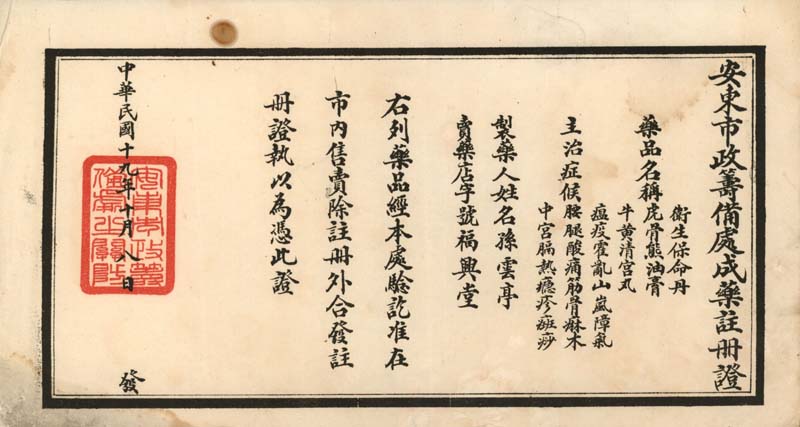 安東市政籌備處成藥註冊證
衛生保命丹
藥品名稱虎骨熊油膏
牛黄清宫丸
瘟疫霍亂山嵐障氣
主治症候腰腿酸痛筋骨麻木
中宮膈热癮疹斑痧
製藥人姓名孫雲亭
賣藥店字號福興堂
右列藥品經本處驗訖准在
市內售賣除註冊外合發註
冊證執以為憑此證
中華民國十九年十月八日
發